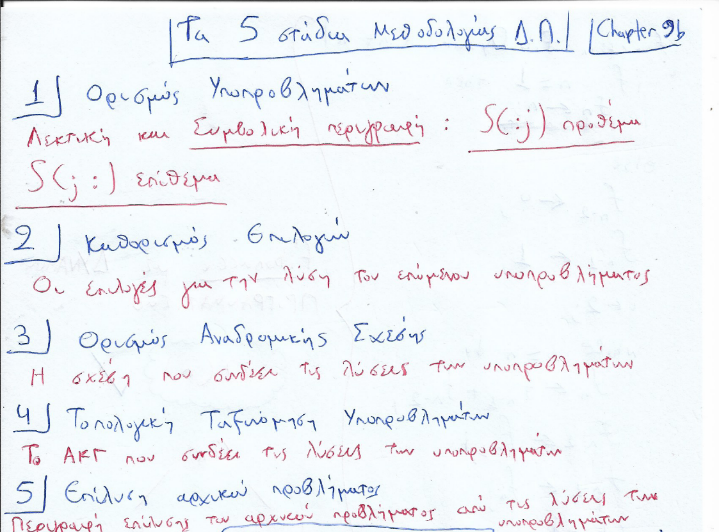 Τα 5 στάδια Μεθοδολογίας Δ.Π. Chapter 9b
1 Ορισμός Υποπροβλημάτων
Λεκτική και Συμβολική περιγραφή : S(:j) πρόθεμα
S(j:) επίθεμα
2 Καθορισμός Επιλογών
Οι επιλογές για την λύση του επόμενου υποπροβλήματος
3 Ορισμός Αναδρομικής Σχέσης
Η σχέση που συνδέει τις λύσεις των υποπροβλημάτων
4 Τοπολογική Ταξινόμηση Υποπροβλημάτων
Το ΑΚΓ που συνδέει τις λύσεις των υποπροβλημάτων
5 Επίλυση αρχικού προβλήματος
Περιγραφή επίλυσης του αρχικού προβλήματος από τις λύσεις των
υποπροβλημάτων